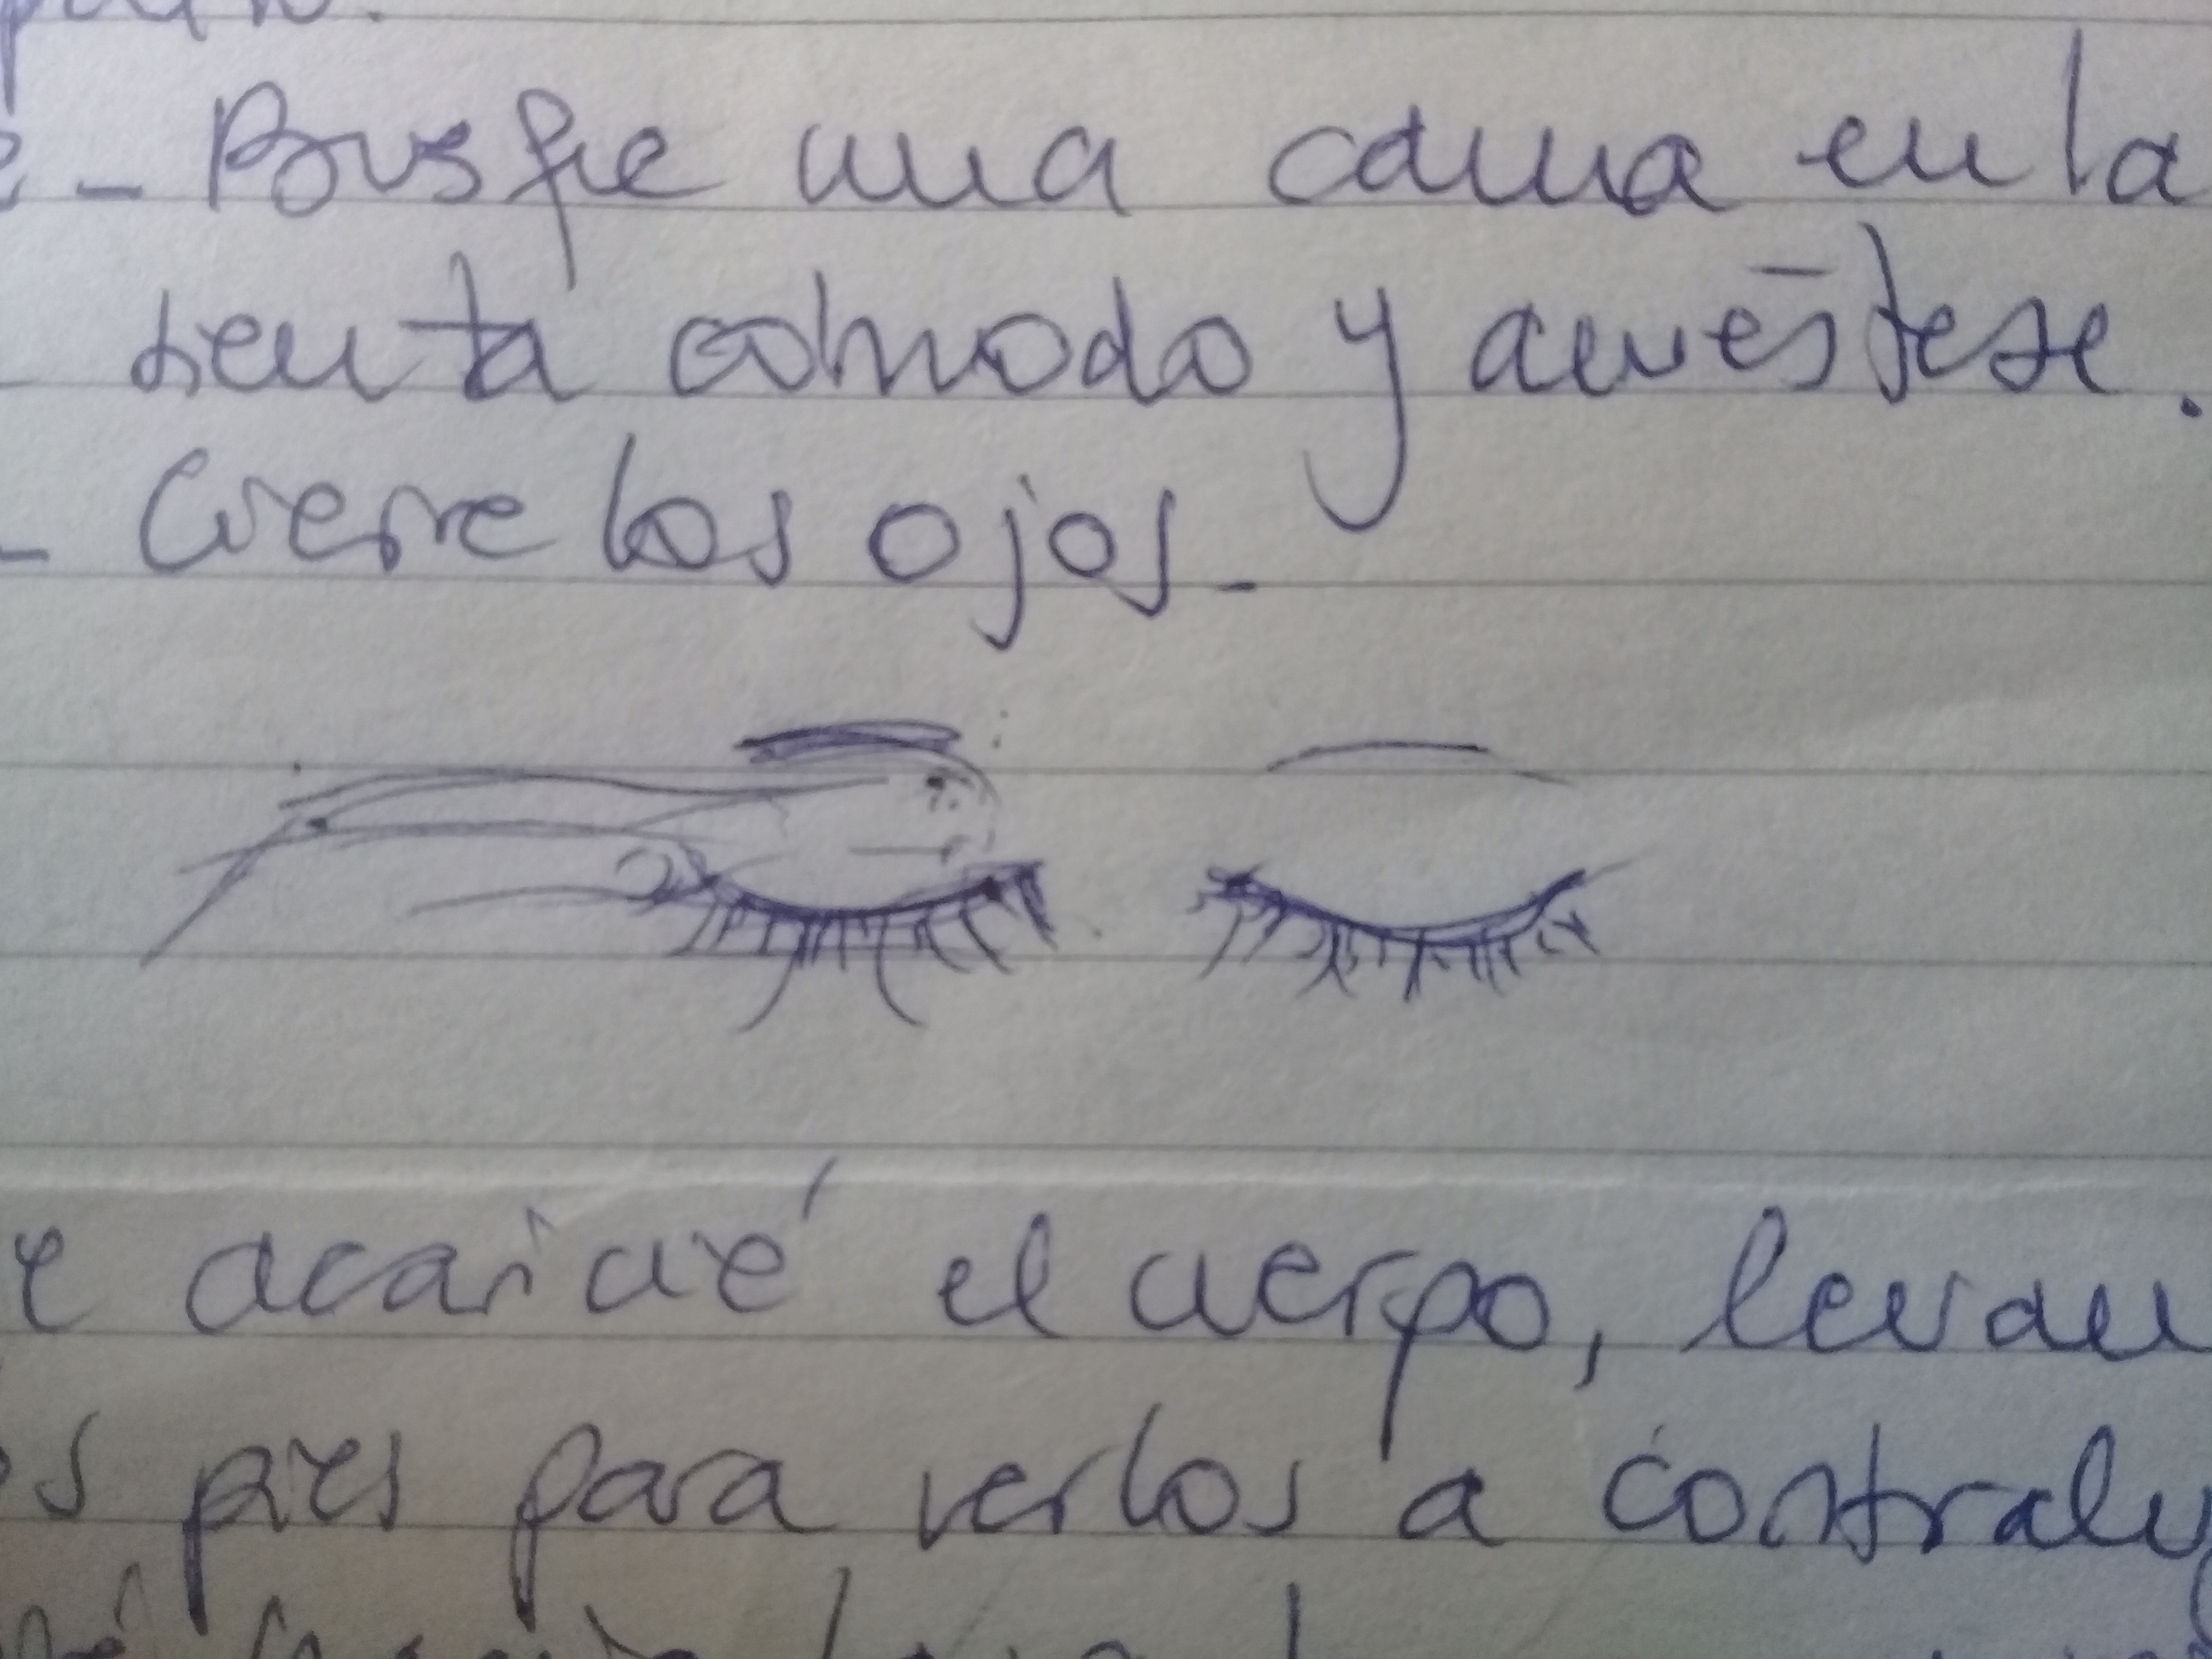 - Busque una cama en la
sienta cómodo y acuéstese.
- Cierre los ojos.
e acaricié el cuerpo, levan
os pies para verlos a contralu